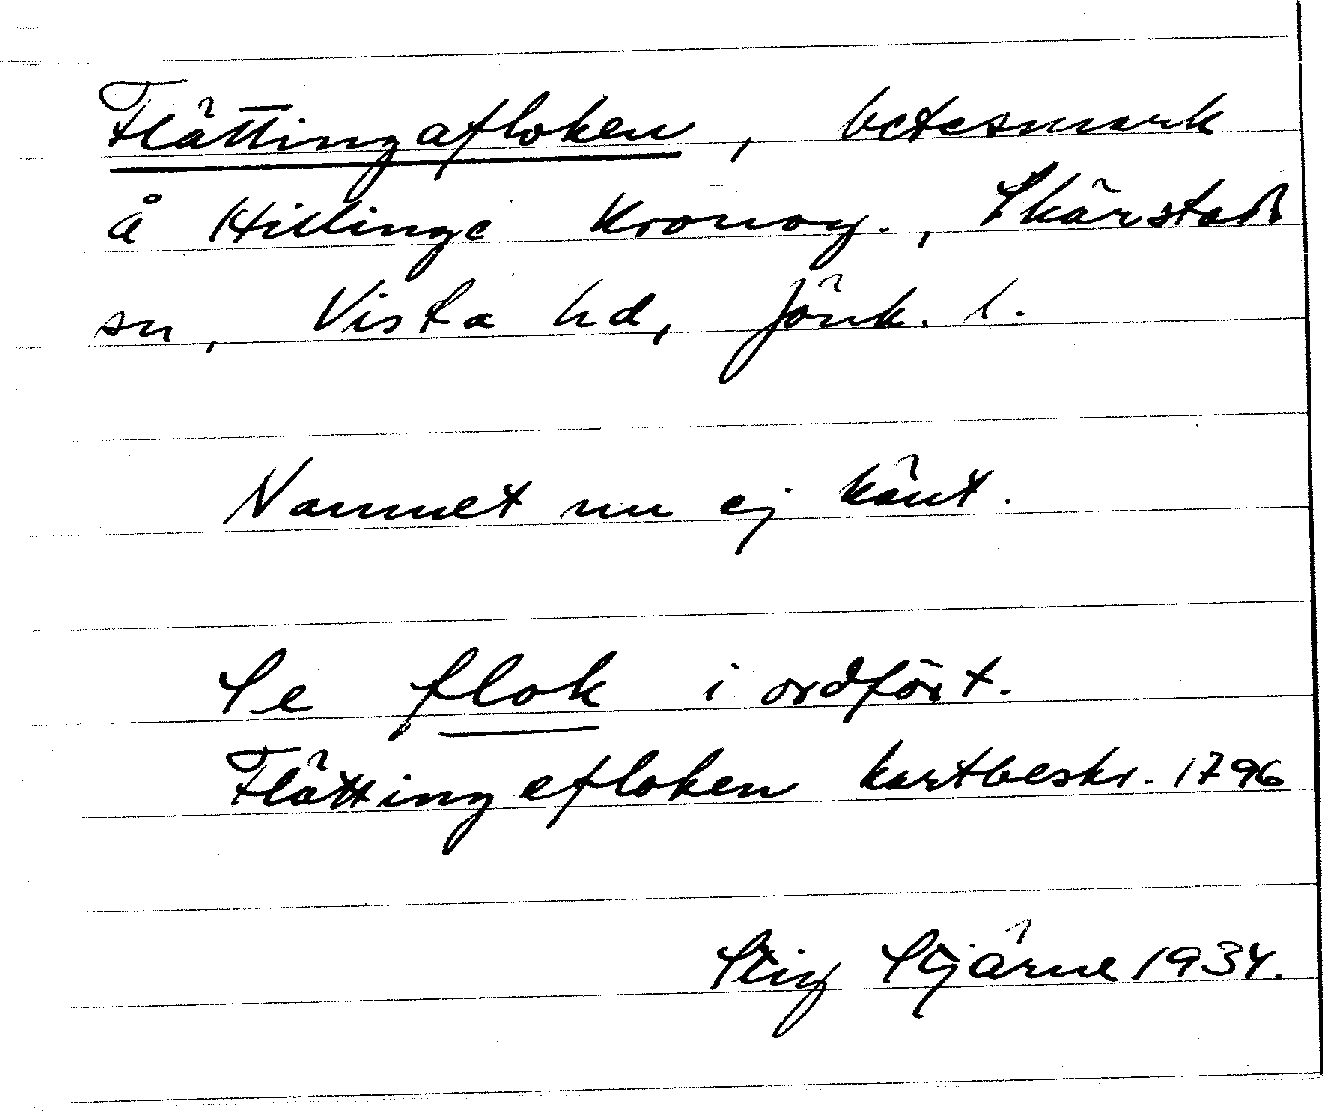 Flättingafloken, betesmark
å Hillinge Kronog., Skärstads
sn, Vista hd, Jönk. l.
Namnet nu ej känt.
Se flok i ordfört.
Flättingefloken kartbeskr. 1796
Stig Stjärne 1934.